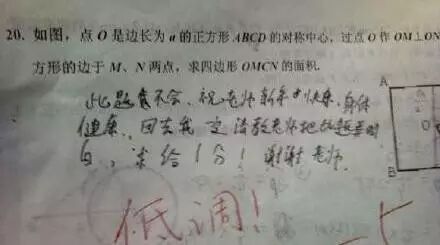 20. 如图，点 O 是边长为 a 的正方形 ABCD 的对称中心，过点 O 作 OM⊥ON
方形的边于 M、N 两点，求四边形 OMCN 的面积.
此题我不会、祝老师新年快乐、身体
健康、回去我一定请教老师把此题弄明
白、求给1分！谢谢老师.
低调！
A
O
B